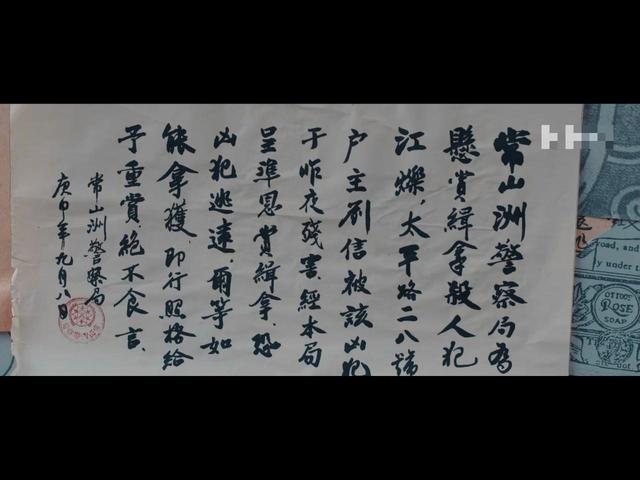 常山洲警察局為
懸賞緝拿殺人犯
江爍，太平路二八號
户主劉信被該凶犯
于昨夜殘害經本局
呈準恩賞緝拿.恐
凶犯逃逺.爾等如
能拿獲.即行照格給
予重賞.絕不食言.
常山洲警察局
庚申年九月八日
road, and
ly under t
OTTOS
ROSE
SOAP